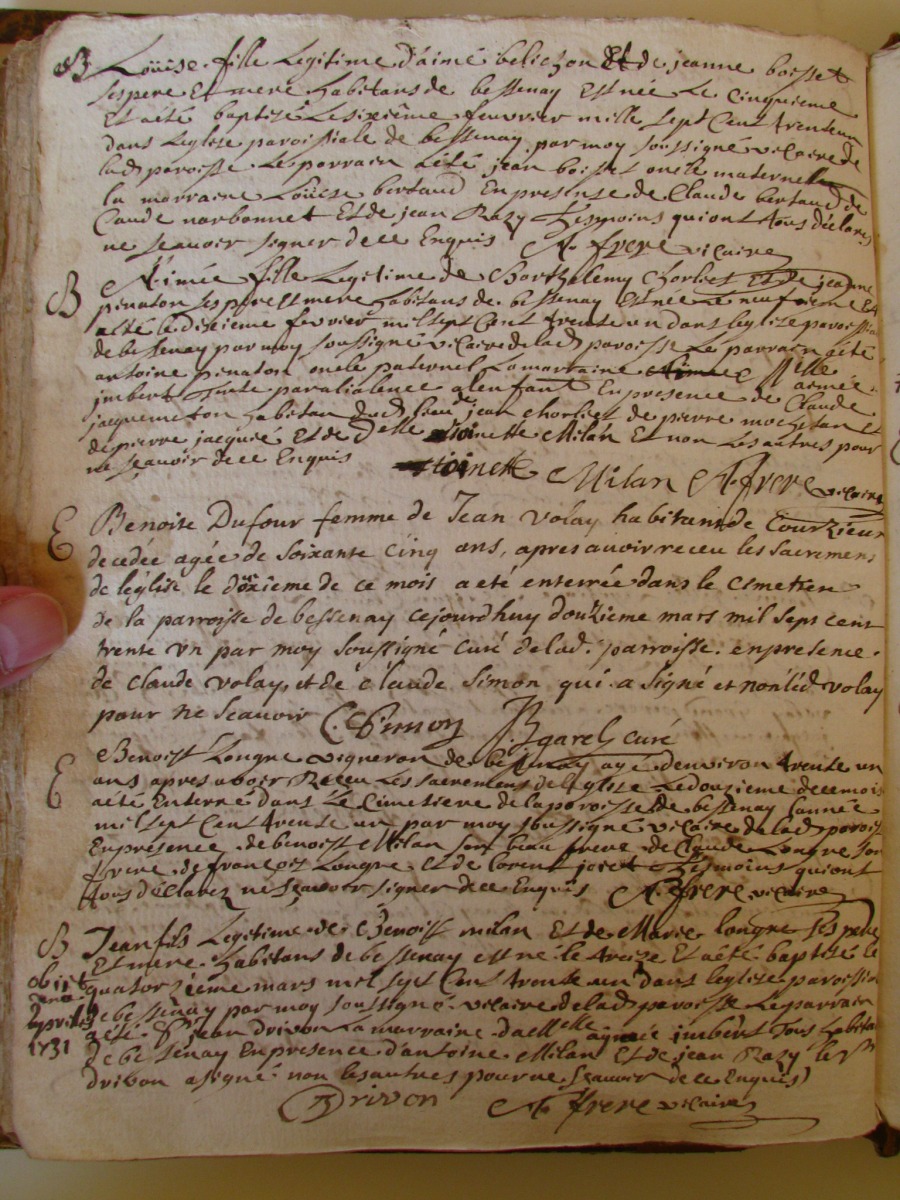 B Loüise fille Legitime d'aimé belichon Et de jeanne boisset
ses pere Et mere habitans de bessenay Est née Le Cinquieme
Et a été baptisé Le sixiême feuvrier mille sept Cent trenteun
dans L'eglise paroissiale de bessenay par moy soussigné vicaire de
lad paroisse Le parrain a été jean boisset oncle maternel
la marraine Loüise bertaud En presense de Claude bertaud de
Caude narbonnet Et de jean Razy tesmoins qui ont tous déclarés
ne sçeauoir signer de ce Enquis A. frere vicaire
B Aimée fille Legitime de Barthelemy Chorliet Et de jeanne
penaton ses pere Et mere habitans de bessenay Est née le neufvieme Et
a été le dixieme fevrier mil sept Cent trente un dans leglise paroissia
de bessenay par moy soussigné vicaire de lad paroisse Le parrain a été
antoine penaton oncle paternel La marraine aimée
jmbert En presence de Claude
jacquemeton habitan dud lieu de jean Chorliet de pierre mochetan et
de pierre jacquié Et de Delle toinette Milan Et non Les autres pour
ne sçeauoir de ce Enquis toinette Milan A. frere vicaire
E Benoite Dufour femme de Jean Volay habitant de Courzieu
decedée agée de soixante cinq ans, apres auoir receu les sacremens
de l'église le dixieme de ce mois a eté enterrée dans le cimetiere
de la parroisse de bessenay cejourdhuy douzieme mars mil sept cent
trente vn par moy soussigné curé de lad. parroisse. en presence
de claude volay, et de claude Simon qui a signé et non led volay
pour ne sçeauoir C. Simon Bgarel curé
E Benoist Longre vigneron de bessenay agé denviron trente un
ans apres avoir Receu Les sacremens de l'eglise Le douzieme de ce mois
a été Enterré dans Le Cimetiere de la paroisse de bessenay l'année
mil sept Cent trente un par moy soussigné vicaire de lad parois
En presence de benoist Milan son beau frere de Claude Longre son
frere de françois Longre et de Lorent joiet tesmoins qui ont
tous déClarez ne sçeavoir signer de ce Enquis A. frere vicaire
B Jean fils Legitime de Benoist milan Et de Marie longre ses pere
Et mere habitans de bessenay est né le treize Et a été baptisé le
obiit quatorzieme mars mil sept Cent trente un dans leglise paroissial
de bessenay par moy soussigné vicaire de lad paroisse Le parrain
aprilis a été Sr jean drivon La marraine Jmbert tous habitan
1731 de bessenay En presence d'antoine Milan Et de jean Razy le Sr
drivon a signé non les autres pour ne sçeauoir de ce Enquis
Drivon A. frere vicaire